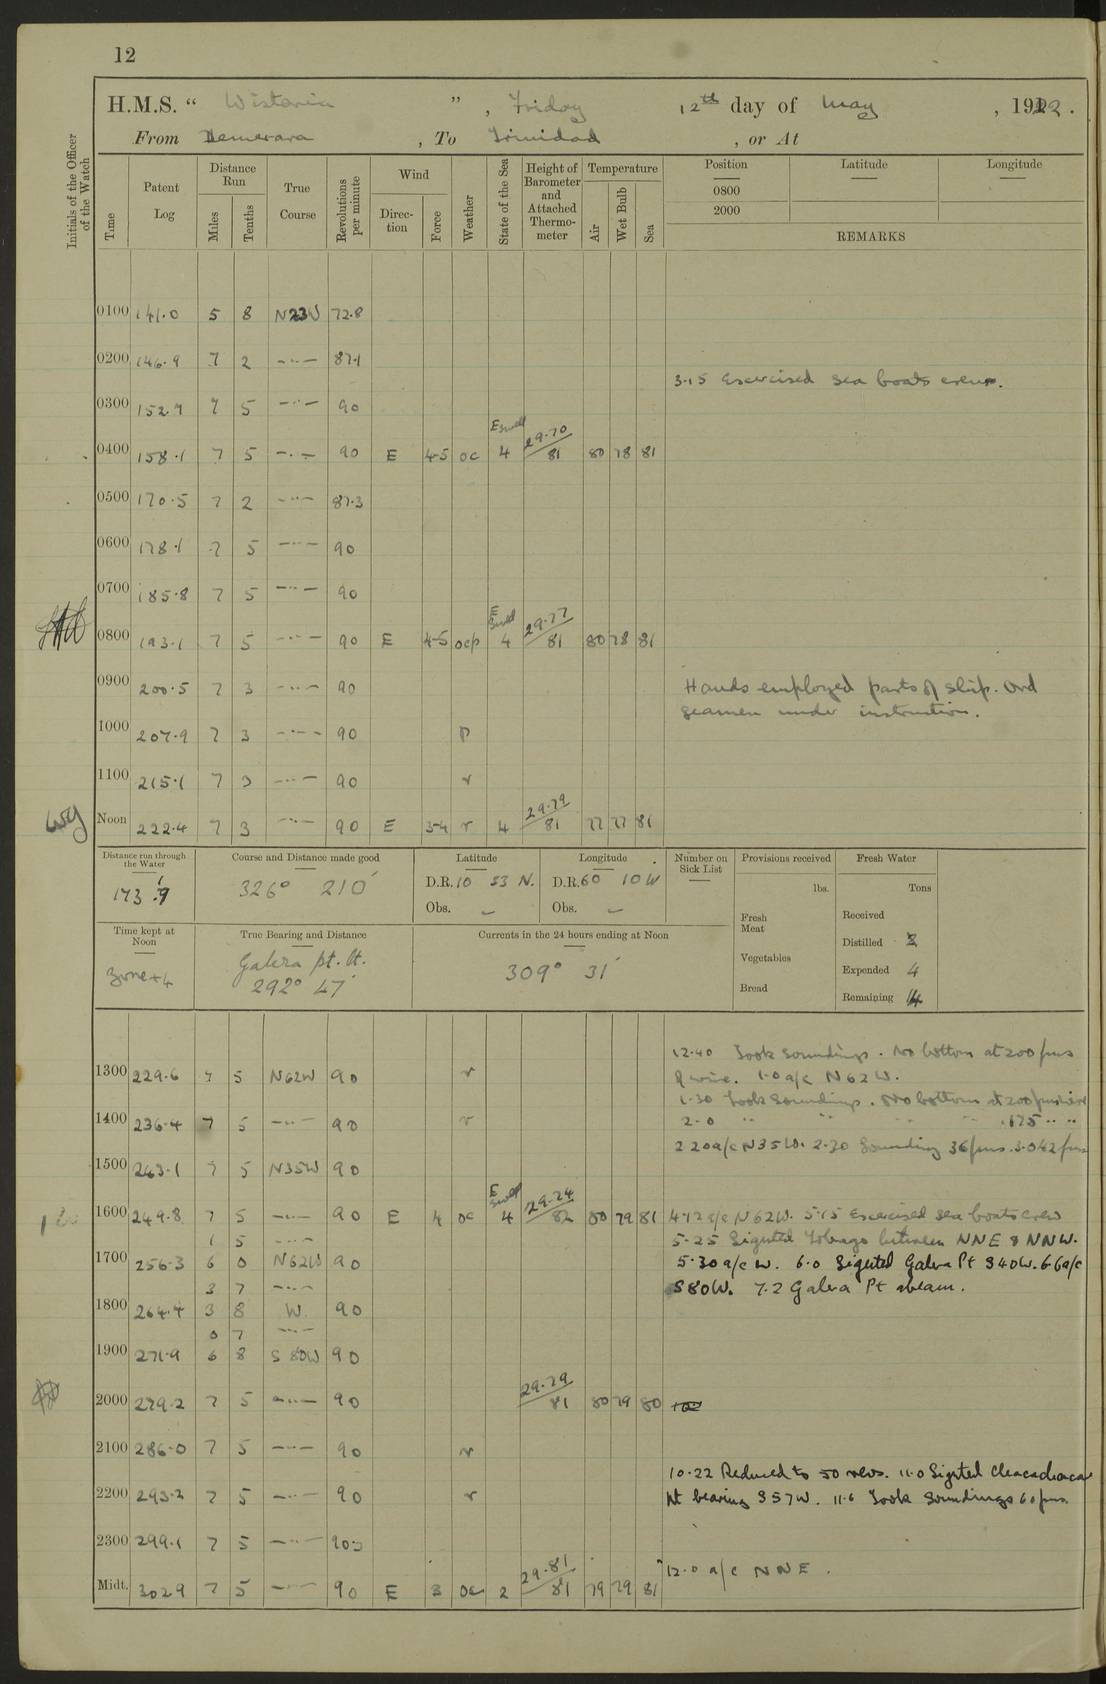 12
H.M.S. “ Wistaria ” , Friday 12th day of May , 1922.
From Demerara , To Trinidad , or At
Initials of the Officer of the Watch
Time
Patent Log
Distance Run
Miles
Tenths
True Course
Revolutions per minute
Wind
Direction
Force
Weather
State of the Sea
Height of Barometer and Attached Thermometer
Temperature
Air
Wet Bulb
Sea
Position Latitude Longitude
0800
2000
REMARKS
0100 141.0 5 8 N23W 72.8
0200 146.9 7 2 —··— 87.1
3.15 Exercised sea boats crew.
0300 152.7 7 5 —··— 90
E swell 29.70
0400 158.1 7 5 —·— 90 E 4-5 oc 4 81 80 78 81
0500 170.5 7 2 —··— 87.3
0600 178.1 7 5 —··— 90
0700 185.8 7 5 —··— 90
E swell 29.77
0800 193.1 7 5 —··— 90 E 4-5 ocp 4 81 80 78 81
0900 200.5 7 3 —··— 90 Hands employed parts of ship. Ord
seamen under instruction.
1000 207.9 7 3 —··— 90 p
1100 215.1 7 3 —··— 90 r
29.79
Noon 222.4 7 3 —··— 90 E 3-4 r 4 81 77 77 81
Distance run through the Water
173.9
Course and Distance made good
326° 210'
Latitude
D.R. 10 53 N.
Obs. —
Longitude
D.R. 60 10 W
Obs. —
Number on Sick List
Provisions received
lbs.
Fresh Meat
Vegetables
Bread
Fresh Water
Tons
Received
Distilled
Expended 4
Remaining
Time kept at Noon
Zone +4
True Bearing and Distance
Galera pt. lt.
292° 47'
Currents in the 24 hours ending at Noon
309° 31'
12.40 Took soundings. No bottom at 200 fms
1300 229.6 7 5 N62W 90 r of wire. 1.0 a/c N62W.
1.30 Took soundings. No bottom at 200 fms wire
1400 236.4 7 5 —··— 90 r 2.0 ·· ·· ·· ·· 175 ·· ··
2.20 a/c N35W. 2.30 Sounding 36 fms. 3.0 42 fms
1500 243.1 7 5 N35W 90
E swell 29.74
1600 249.8 7 5 —··— 90 E 4 oc 4 82 80 79 81 4.12 a/c N62W. 5.15 Exercised sea boats crew
1 5 —··— 5.25 Sighted Tobago between NNE & NNW.
1700 256.3 6 0 N62W 90 5.30 a/c W. 6.0 Sighted Galera Pt S40W. 6.6 a/c
3 7 —··— S80W. 7.2 Galera Pt abeam.
1800 264.4 3 8 W. 90
0 7 —··—
1900 271.9 6 8 S 80W 90
29.79
2000 279.2 7 5 —··— 90 81 80 79 80
2100 286.0 7 5 —··— 90 r
10.22 Reduced to 50 revs. 11.0 Sighted Chacachacare
2200 293.2 7 5 —··— 90 r Pt bearing S57W. 11.6 Took Soundings 60 fms.
2300 299.1 7 5 —··—
29.81 12.0 a/c NNE.
Midt. 302.9 7 5 —··— 90 E 3 oc 2 81 79 79 81